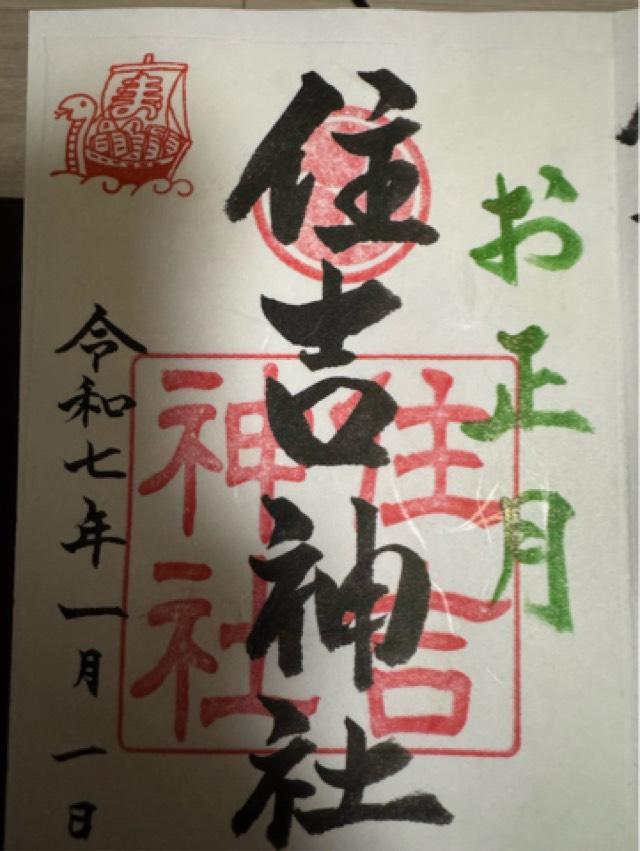 お正月
住吉神社
住吉
神社
令和七年一月一日
寿